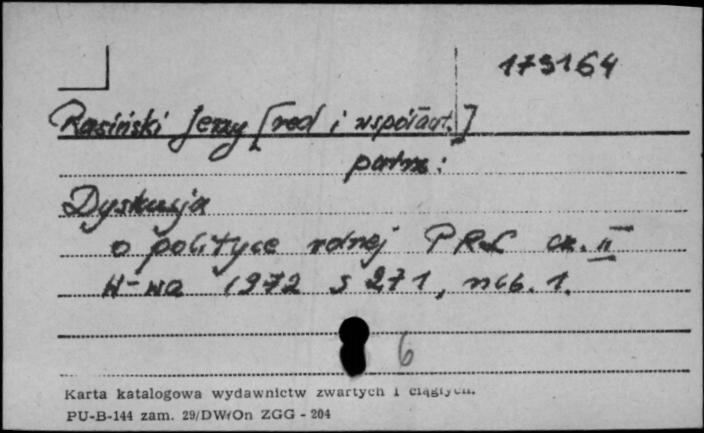 173164
Rasiński Jerzy [red i współaut.]
patrz:
Dyskusja
o polityce rolnej PRL cz. II
W-wa 1972 s 271, nlb. 1.
6
Karta katalogowa wydawnictw zwartych i ciągłych.
PU-B-144 zam. 29/DWłOn ZGG - 204